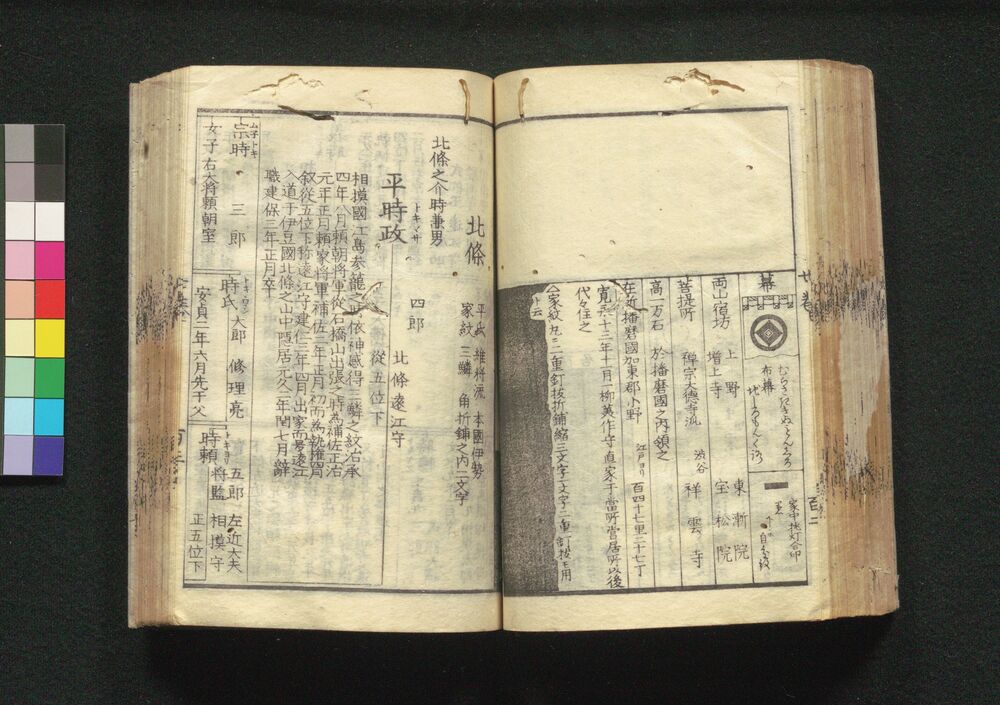 幕
布幕
家中挑灯合印
両山宿坊
上野
東漸院
増上寺
宝松院
菩提所
禅宗大徳寺派
渋谷
祥雲寺
高一万石
於播磨国之内領之
在近播磨國加東郡小野
江戸ヨリ
百四十七里三十七丁
寛永十三年十月一柳美作守直家于當所営居所以後
代々住之
北條
平氏
維将流
本國伊勢
家紋
三鱗
角折鋪之内二文字
北條之介時兼男
平時政
トキマサ
四郎
北條遠江守
從五位下
相摸國江島参籠之時依神感得三鱗之紋治承
四年八月頼朝將軍從石橋山出張之時為補佐正治
元年正月頼家將軍補佐三年正月初而為執權同
叙從五位下称遠江守建仁三年四月出家而号遠江
入道于伊豆國北條之山中隠居元久二年閏七月辞
職建保三年正月卒
宗時
ムネトキ
三郎
女子
右大將頼朝室
時氏
太郎
修理亮
安貞二年六月先于父
時頼
トキヨリ
五郎
左近大夫
将監
相摸守
正五位下